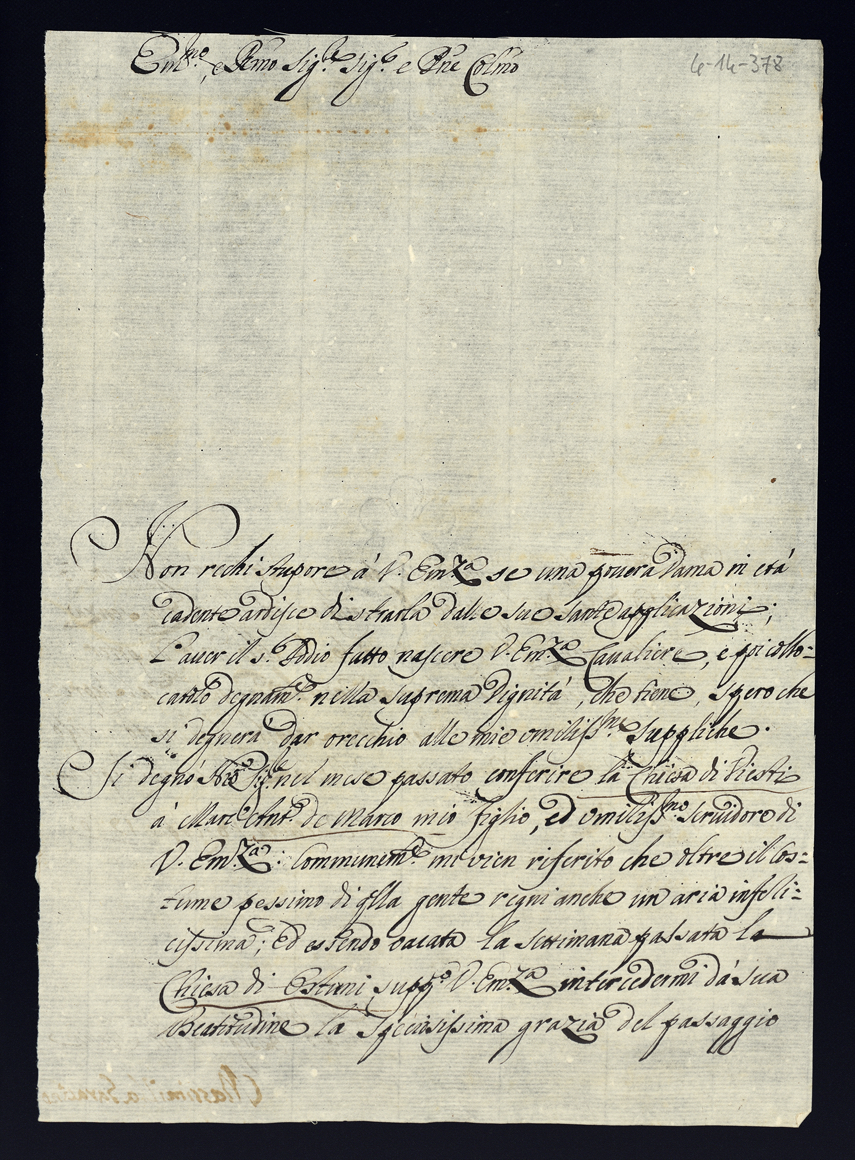 4-14-378
Em.mo, e Rmo Sig.re Sig.r e Pne Colmo
Non rechi stupore à V. Em.za se una povera Dama in età
cadente ardisce distrarla dalle sue sante applicazioni;
L'aver il s. Iddio fatto nascere V. Em.za Cavaliere, e poi collo=
catolo degnam.te nella suprema Dignità, che tiene, spero che
si degnerà dar orecchio alle mie omiliss.me suppliche.
Si degnò Nro Sig.re nel mese passato conferire la Chiesa di Viesti
à Marc'Ant.o de Marco mio figlio, ed omiliss.mo servidore di
V. Em.za: Communem.te mi vien riferito che oltre il cos=
tume pessimo di qlla gente regni anche un aria infeli=
cissima; Ed essendo vacata la settimana passata la
Chiesa di Ostuni, supp.co V. Em.za intercedermi dà sua
Beatitudine la Speciosissima grazia del passaggio